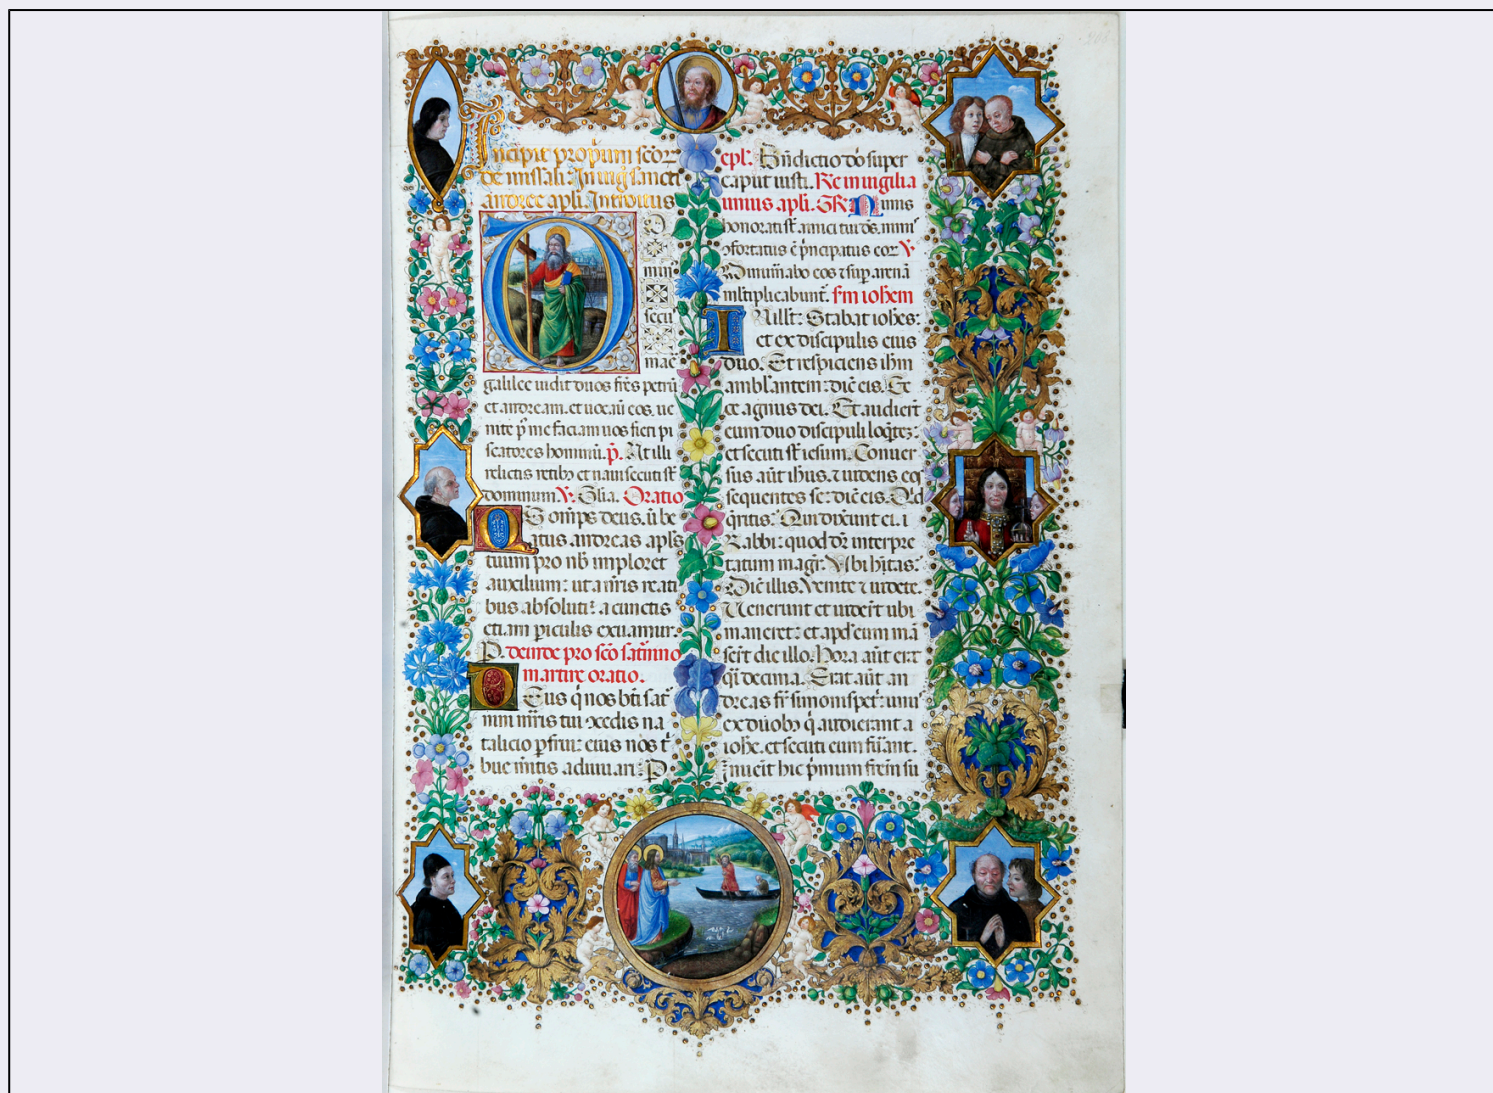 Incipit propriũ scõr
de missali. In uig̃ sancti
andree apli. Introitus
D
O
min᷒
secu᷒
mare
galilee uidit duos fr̃es petrũ
et andream. et uocauit eos. ue
nite p᷒ me faciam uos fieri pi
scatores hominũ. p̃. At illi
relictis retib᷒ et naui secuti st̃
dominum. V. Gl̃ia. Oratio
Q S omp̃s deus. ũ be
atus andreas apl̃s
tuum pro nb̃ imploret
auxilium: ut a nr̃is reati
bus absoluti: a cunctis
etiam piculis exuamur.
P. deinde pro sc̃o satñino
martire oratio.
D Eus q̃ nos bt̃i sat᷒
nini mr̃is tui ↄcedis na
talicio pfrui: eius nos t᷒
bue mr̃itis adiuuari. P
epl̃. Bñdictio dõ super
caput iusti. Re in uigilia
unius apl̃i. GR Nimis
honorati st̃ amici tui d̃s. nimi᷒
ↄfortatus ẽ p̃ncipatus eor̃ V᷒
Dinum̃abo eos ⁊ sup arenã
ml̃tiplicabunt᷒. sm̃ iohem
I N ill̃ t̃: Stabat ioh̃es:
et ex discipulis eius
duo. Et respiciens ih̃m
ambl̃antem: dic̃ eis. Ec
ce agnus dei. Et audier̃t
eum duo discipuli loq̃tez:
et secuti st̃ iesum. Conuer
sus aũt ih̃us. ⁊ uidens eos
sequentes se: dic̃ eis. Q᷒d
q̃ritis: Qui dixerunt ei. i
Rabbi: quod dr̃ interpre
tatum magr̃: Vbi h̃itas:
Dic̃ illis. Venite ⁊ uidete.
Uenerunt et uider̃t ubi
maneret: et apd̃ eum mã
ser̃t die illo. Hora aũt erat
q̃i decima. Erat aũt an
dreas fr̃ simonis pet᷒: unus
ex duob᷒ q̃ audierant a
ioh̃e. et secuti eum fũant.
Inuẽit hic p̃mum fr̃em su